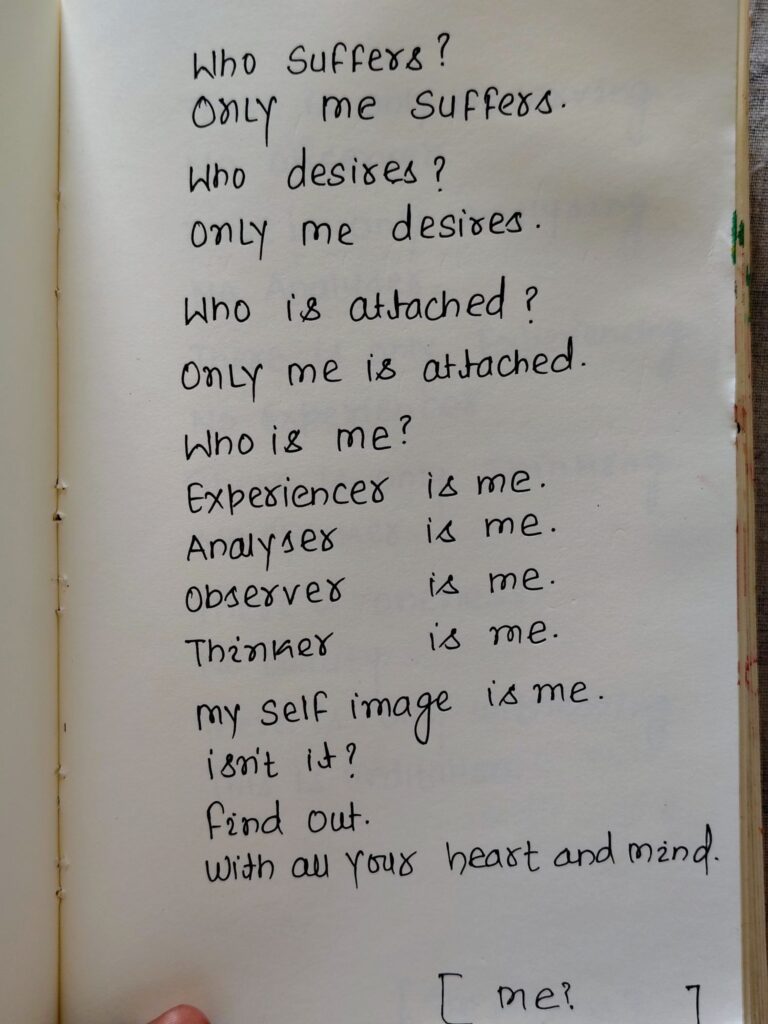 Who suffers?
Only me suffers.
Who desires?
Only me desires.
Who is attached?
Only me is attached.
Who is me?
Experiencer is me.
Analyser is me.
Observer is me.
Thinker is me.
my self image is me.
isn't it?
find out.
With all your heart and mind.
[ me? ]